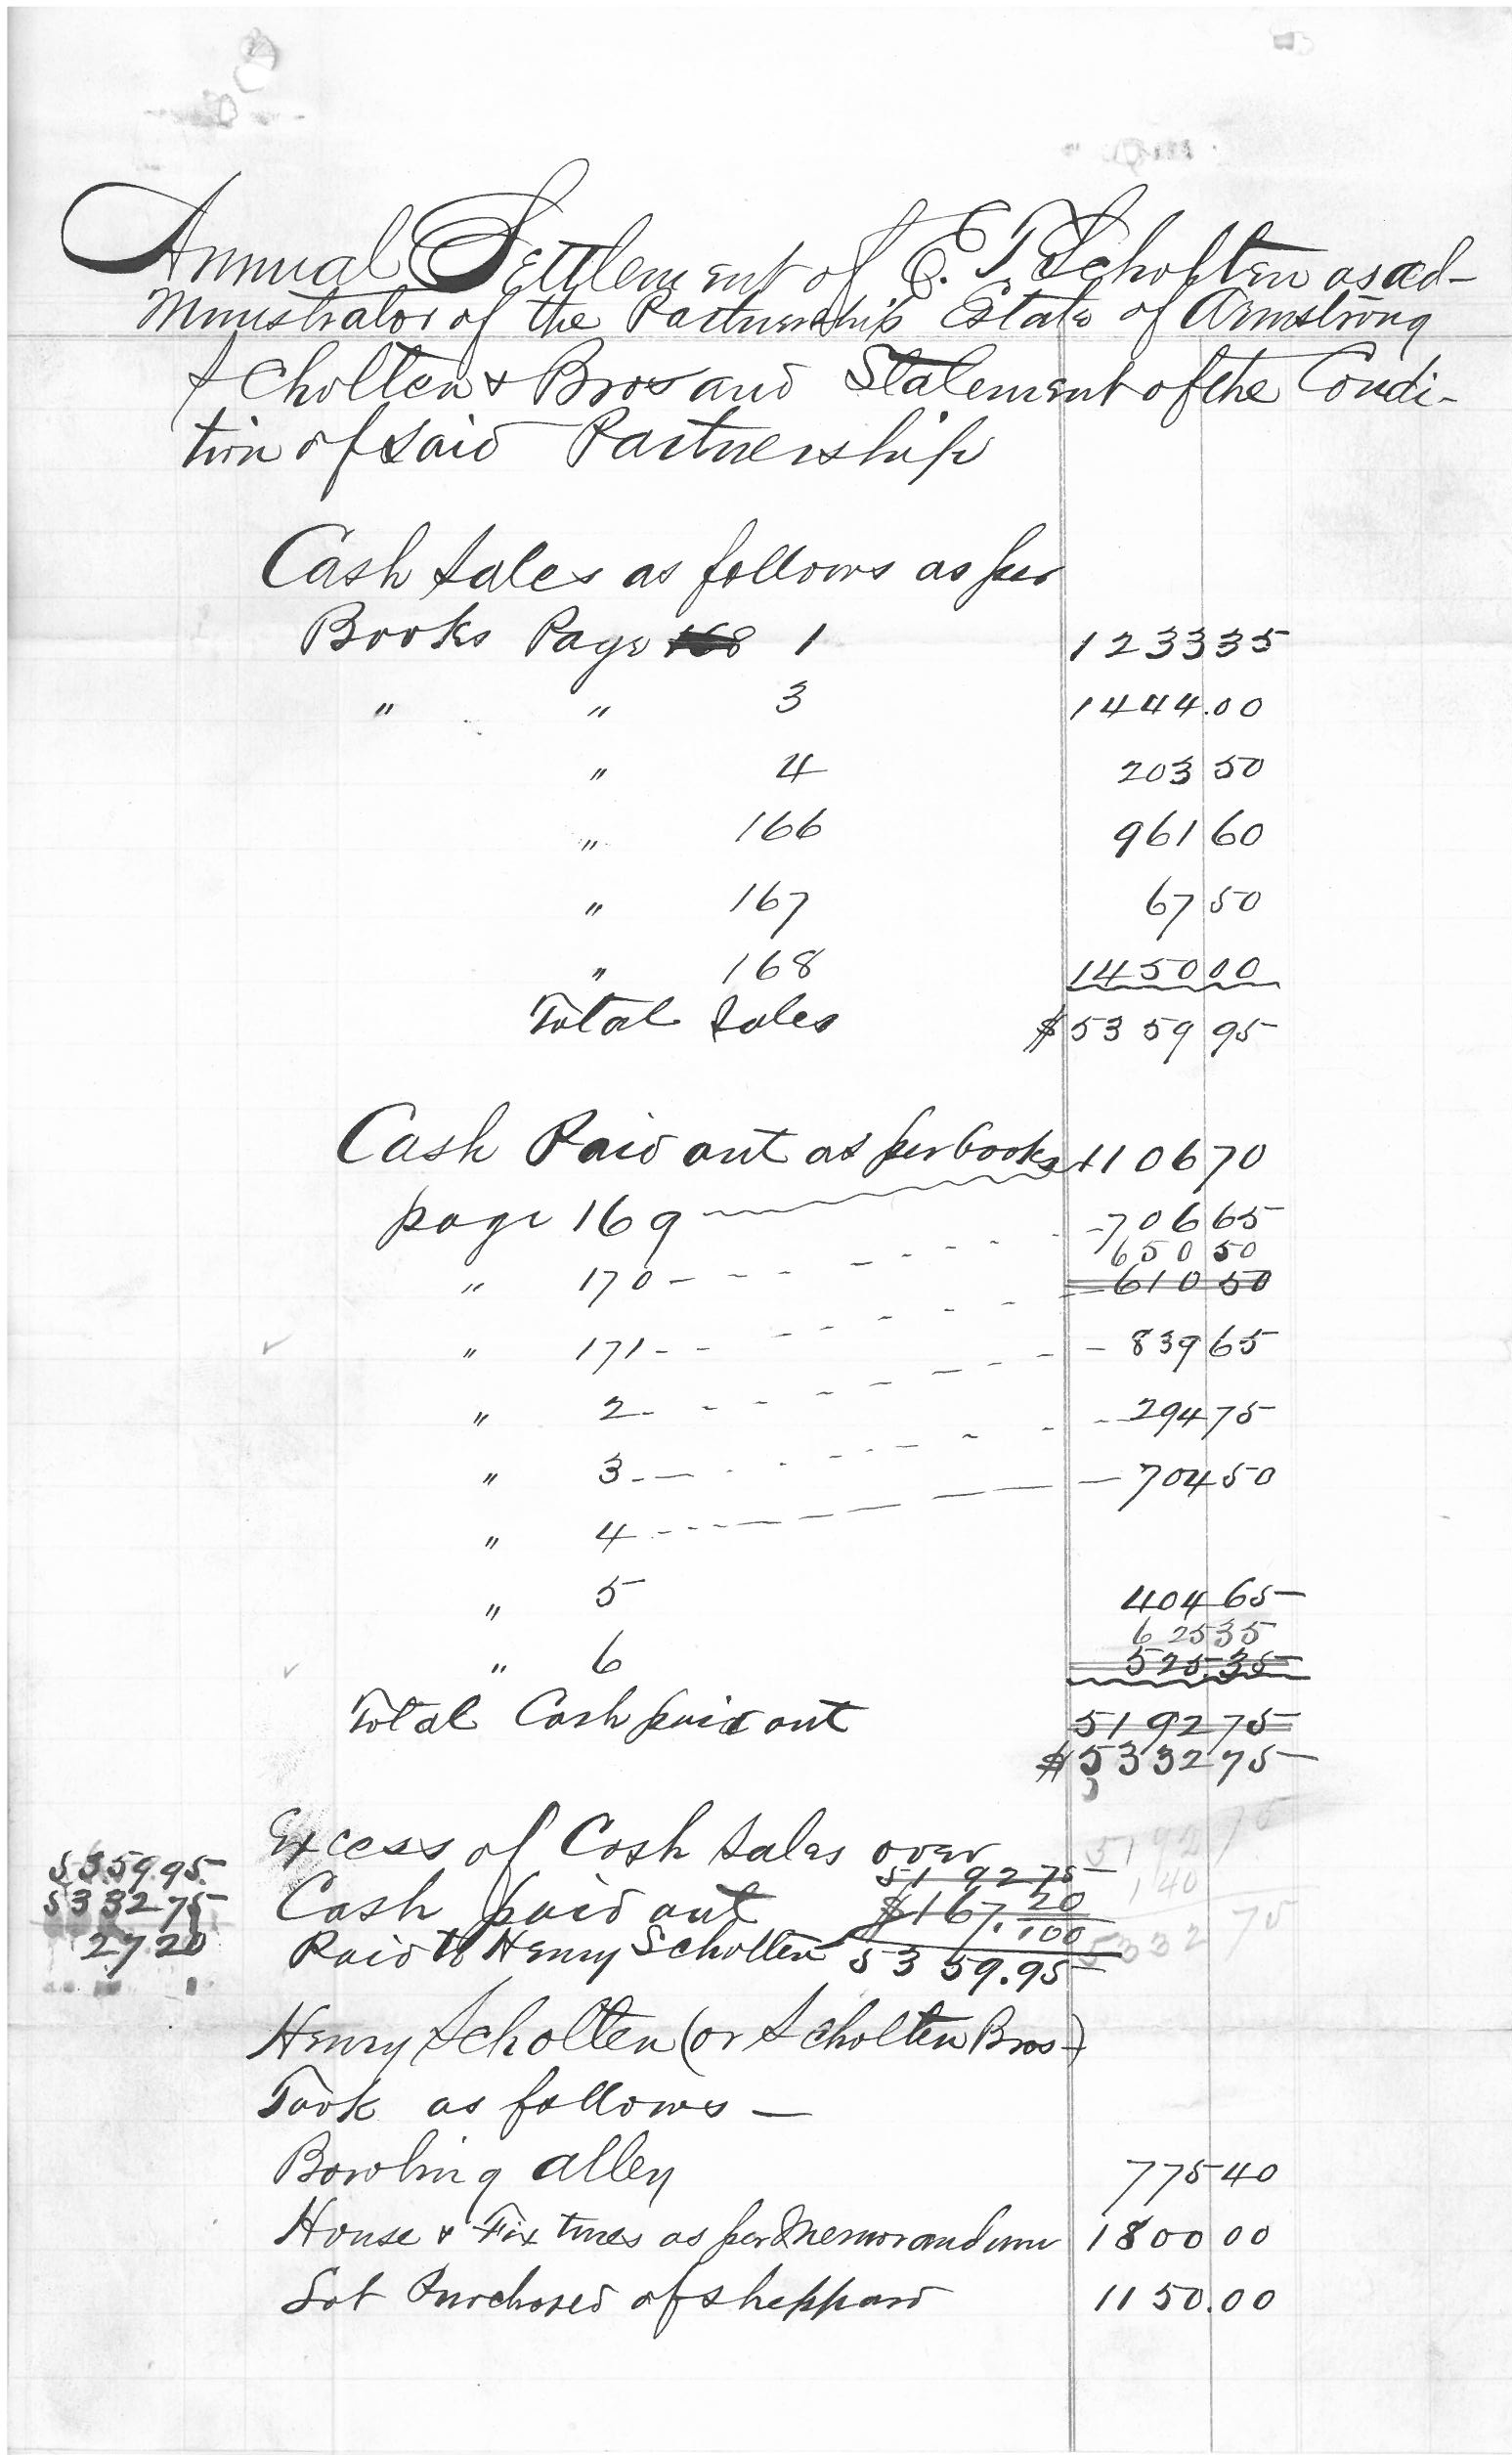 Annual Settlement of E. T. Scholten as ad-
ministrator of the Partnership Estate of Armstrong
Scholten & Bros and Statement of the Condi-
tion of said Partnership
Cash sales as follows as per
Books Page 168 1 1233 35
" " 3 1444.00
" 4 203 50
" 166 961 60
" 167 67 50
" 168 1450 00
Total Sales $5359 95
Cash Paid out as per books 1106 70
page 169 706 65
650 50
" 170 610 50
" 171 839 65
" 2 294 75
" 3 704 50
" 4
" 5 404 65
625 35
" 6 525.35
Total Cash paid out 5192 75
$5332 75
Excess of Cash sales over
5192 75
Cash paid out $167.20/100
Paid to Henry Scholten 5359.95
5359.95
5332 75
27 20
5192 75
140
5332 75
Henry Scholten (or Scholten Bros-)
Took as follows —
Bowling alley 775 40
House & Fixtures as per Memorandum 1800 00
Lot Purchased of Sheppard 1150.00